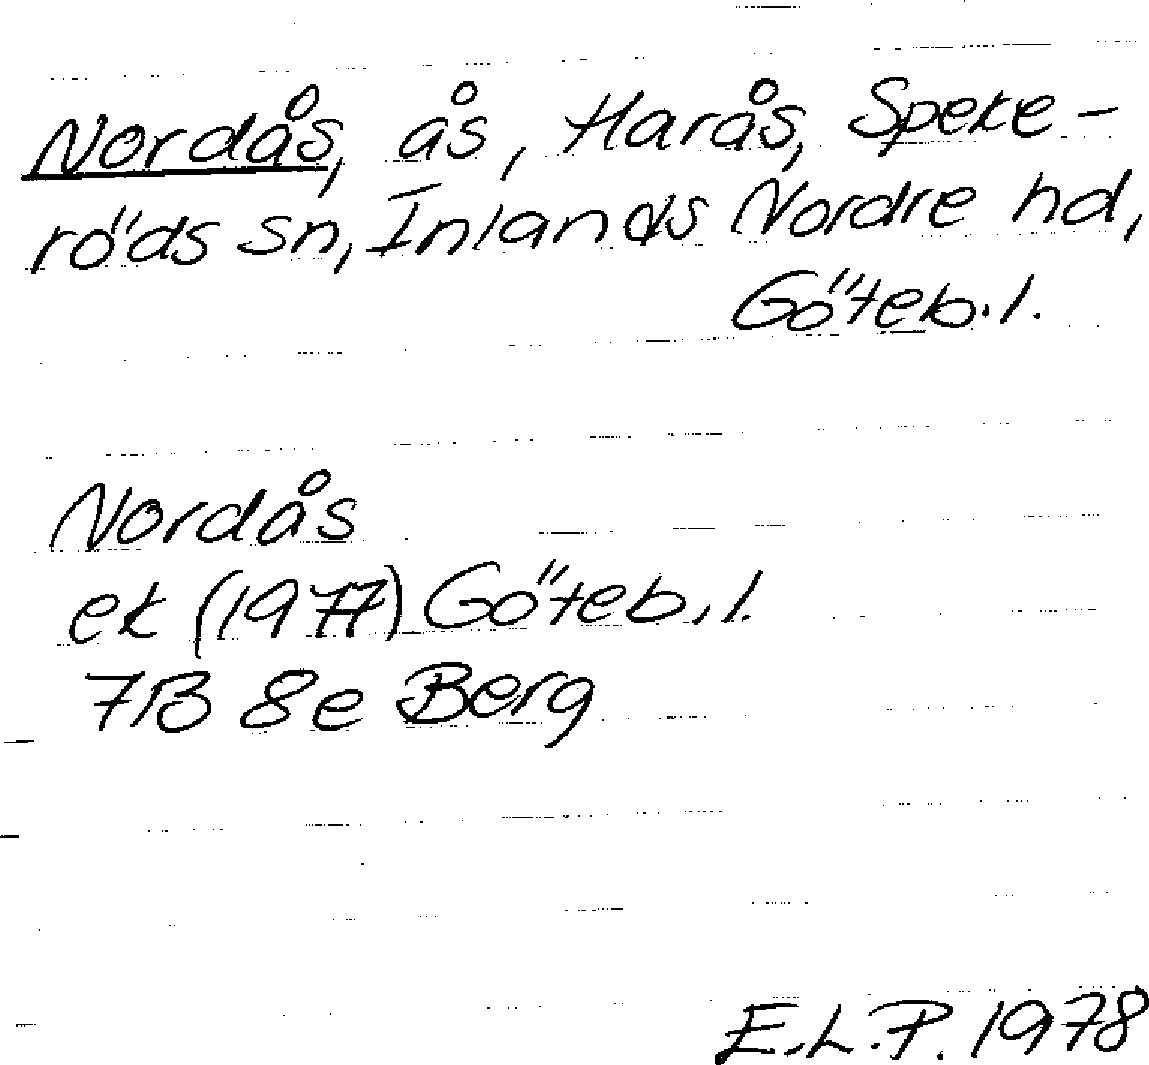 Nordås, ås, Harås, Speke-
röds sn, Inlands Nordre hd,
Göteb.l.
Nordås
ek (1977) Göteb.l.
7B 8e Berg
E.L.P. 1978